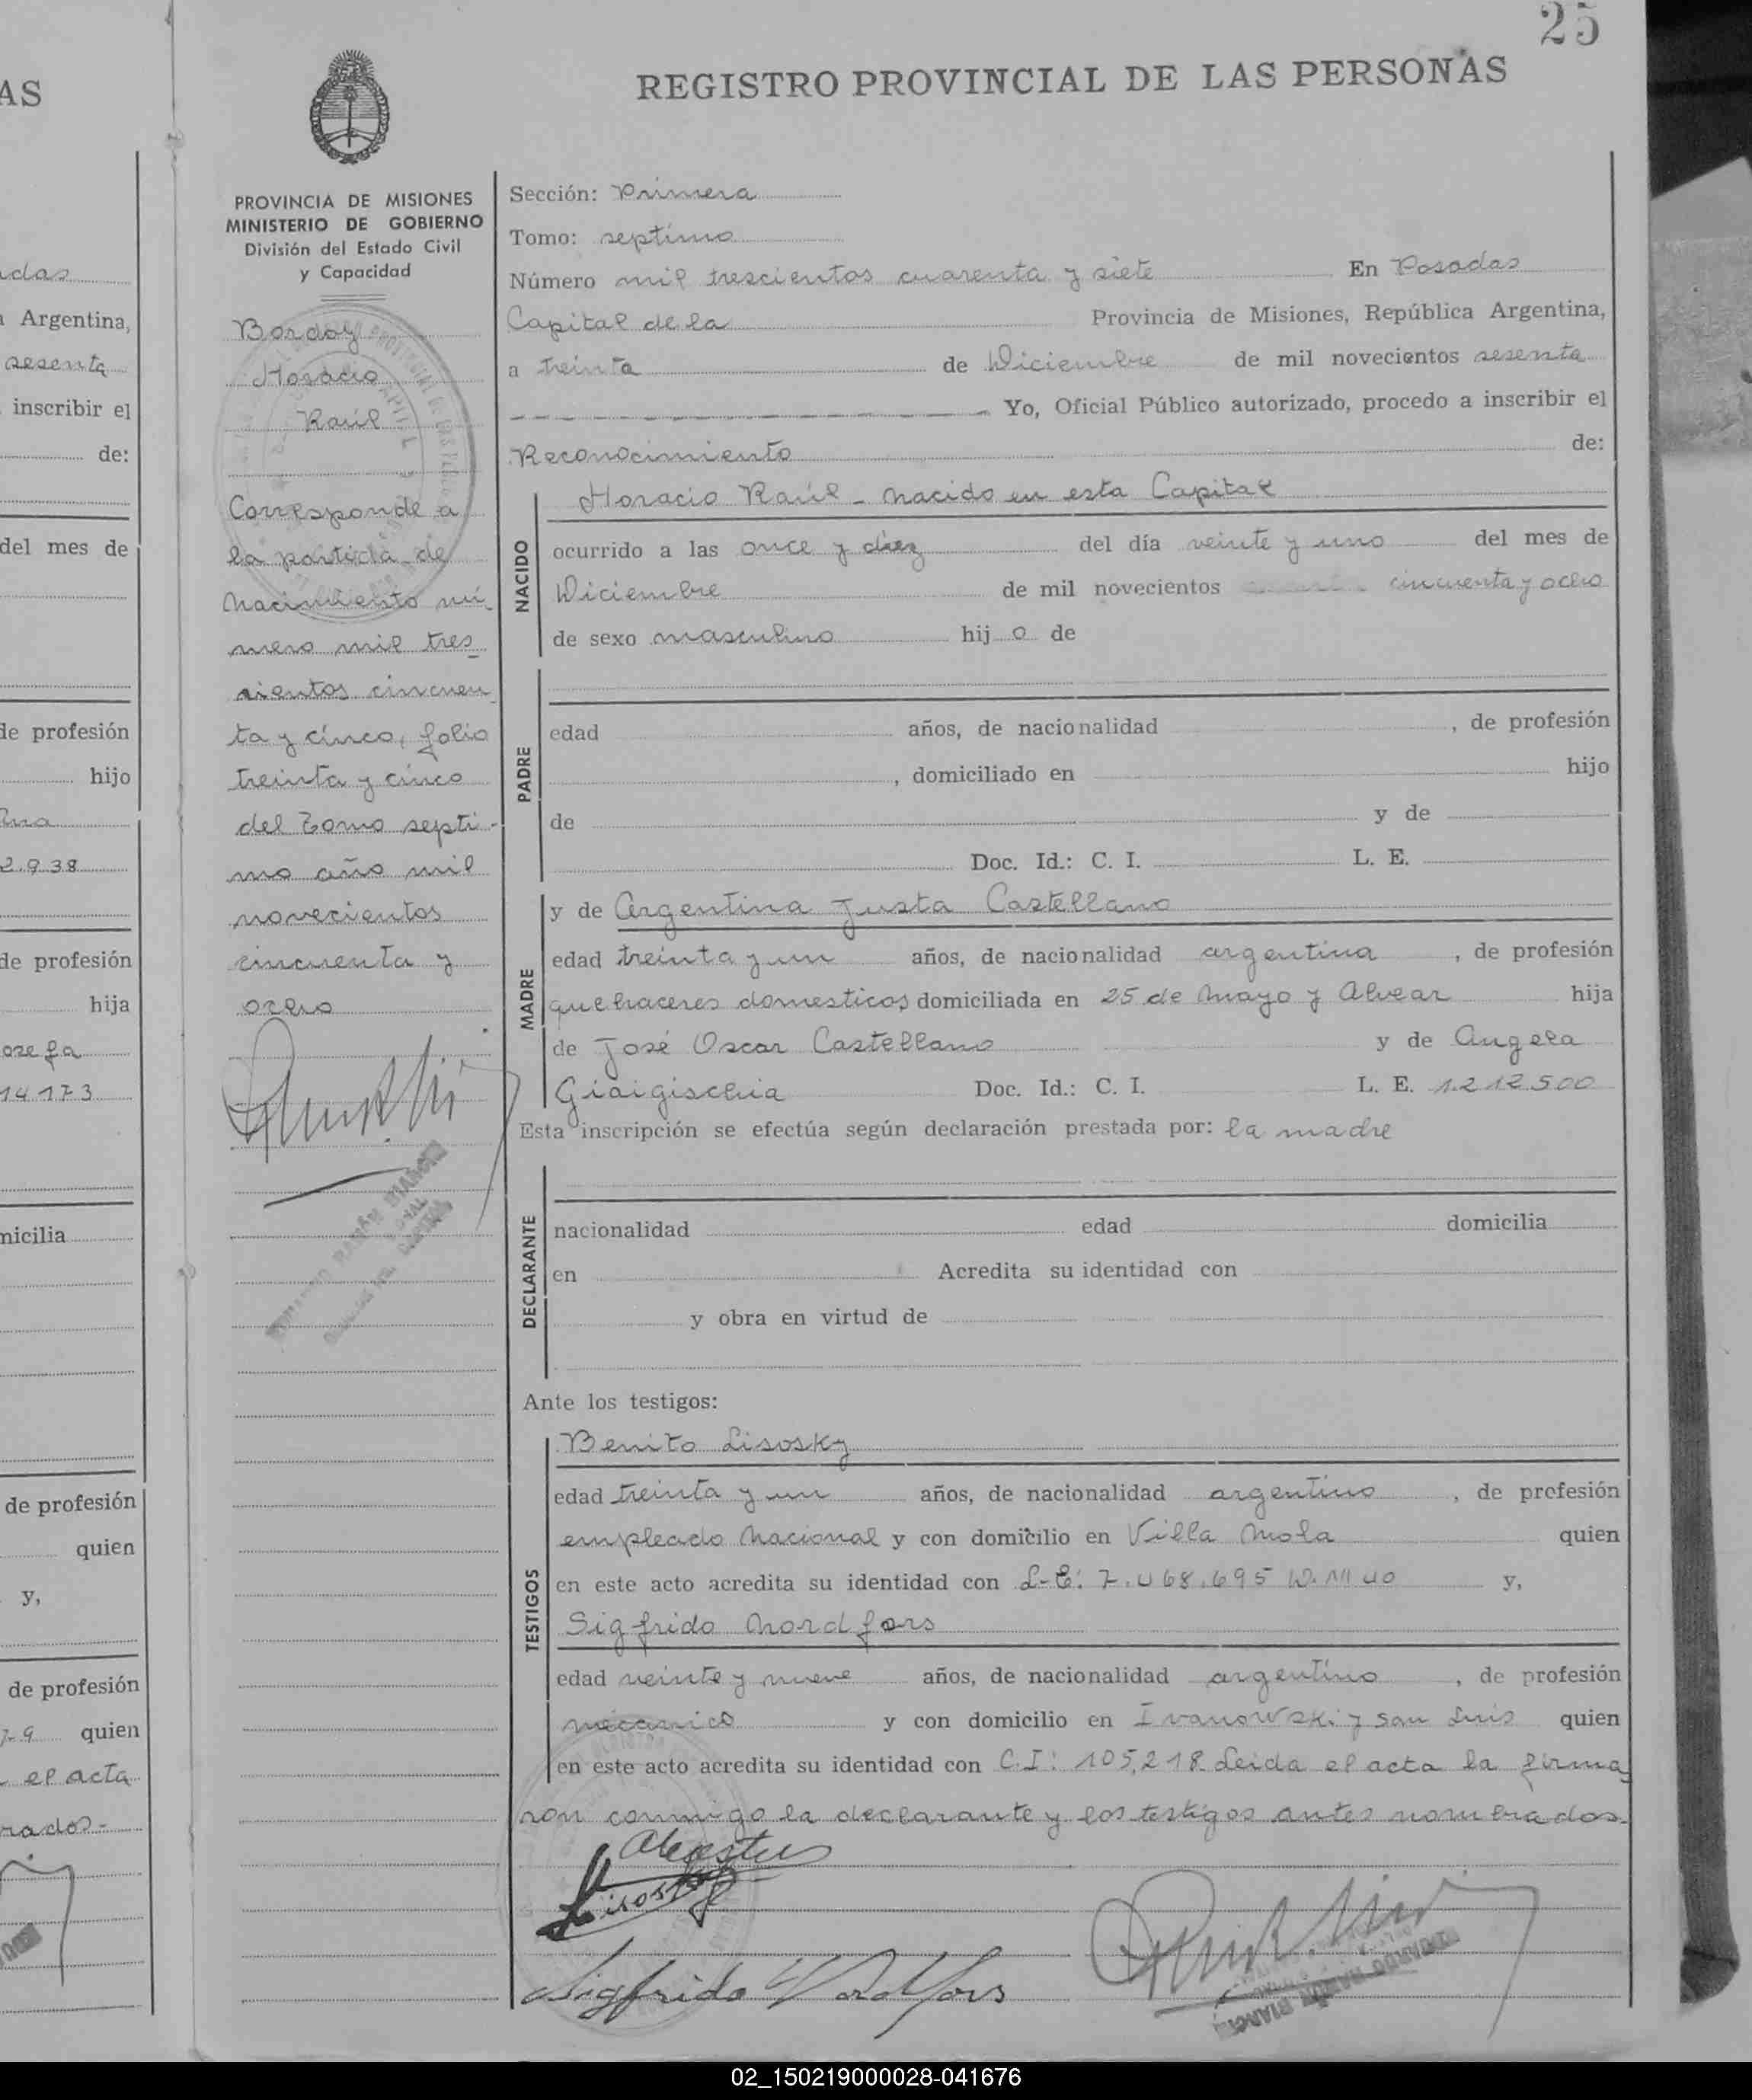 25
REGISTRO PROVINCIAL DE LAS PERSONAS
PROVINCIA DE MISIONES
MINISTERIO DE GOBIERNO
División del Estado Civil
y Capacidad
Bordoy
Horacio
Raúl
Corresponde a
la partida de
nacimiento nú-
mero mil tres
cientos cincuen
ta y cinco, folio
treinta y cinco
del Tomo septi-
mo año mil
novecientos
cincuenta y
ocho
Sección: Primera
Tomo: septimo
Número mil trescientos cuarenta y siete En Posadas
Capital de la Provincia de Misiones, República Argentina,
a treinta de Diciembre de mil novecientos sesenta
Yo, Oficial Público autorizado, procedo a inscribir el
Reconocimiento de:
NACIDO
Horacio Raúl - nacido en esta Capital
ocurrido a las once y diez del día veinte y uno del mes de
Diciembre de mil novecientos cincuenta y ocho
de sexo masculino hij o de
PADRE
edad años, de nacionalidad , de profesión
, domiciliado en hijo
de y de
Doc. Id.: C. I. L. E.
MADRE
y de Argentina Justa Castellano
edad treinta y un años, de nacionalidad argentina , de profesión
quehaceres domesticos domiciliada en 25 de Mayo y Alvear hija
de José Oscar Castellano y de Angela
Giaigischia Doc. Id.: C. I. L. E. 1.212.500
Esta inscripción se efectúa según declaración prestada por: la madre
DECLARANTE
nacionalidad edad domicilia
en Acredita su identidad con
y obra en virtud de
Ante los testigos:
TESTIGOS
Benito Lisosky
edad treinta y un años, de nacionalidad argentino , de profesión
empleado Nacional y con domicilio en Villa Mola quien
en este acto acredita su identidad con L-E: y,
Sigfrido Nordfors
edad veinte y nueve años, de nacionalidad argentino , de profesión
mecanico y con domicilio en Ivanowski y San Luis quien
en este acto acredita su identidad con C.I: 105,218. Leida el acta la firma
ron conmigo la declarante y los testigos antes nombrados.
Lisosky
Sigfrido Nordfors
AS
adas
a Argentina,
sesenta
inscribir el
de:
del mes de
de profesión
hijo
2.938
de profesión
hija
14173
micilia
de profesión
quien
y,
de profesión
quien
el acta
rados-
02_150219000028-041676